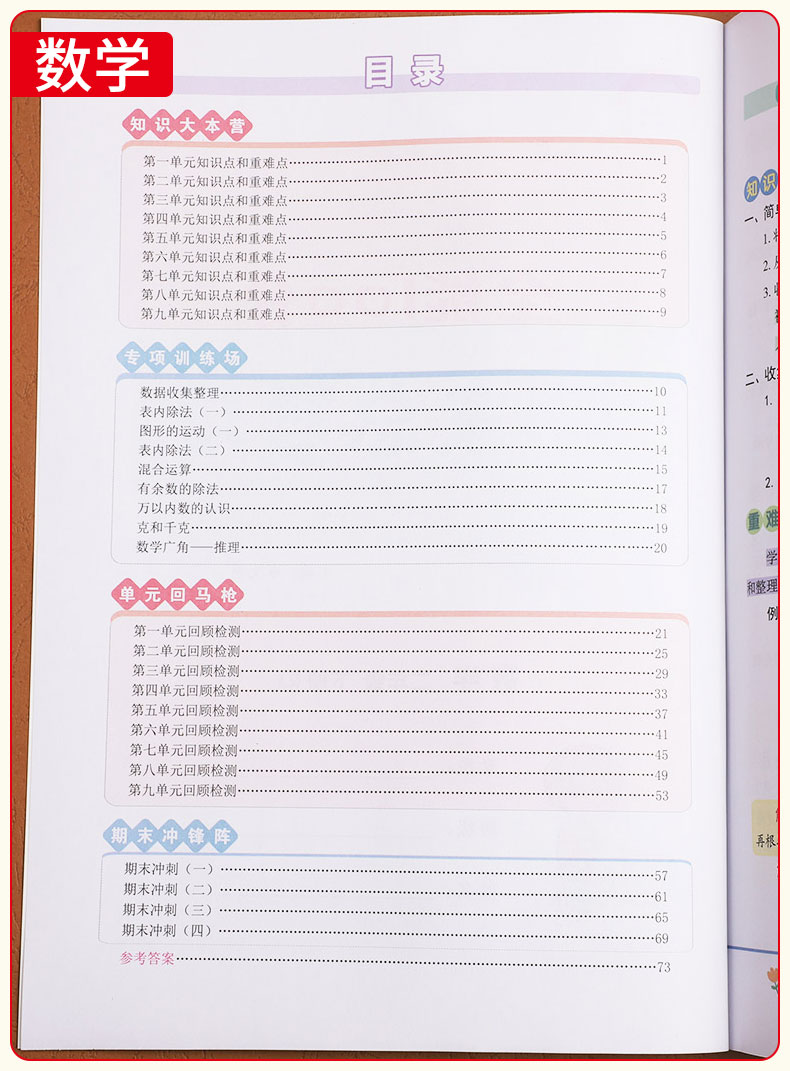 数学
目录
知识大本营
第一单元知识点和重难点 1
第二单元知识点和重难点 2
第三单元知识点和重难点 3
第四单元知识点和重难点 4
第五单元知识点和重难点 5
第六单元知识点和重难点 6
第七单元知识点和重难点 7
第八单元知识点和重难点 8
第九单元知识点和重难点 9
专项训练场
数据收集整理 10
表内除法（一） 11
图形的运动（一） 13
表内除法（二） 14
混合运算 15
有余数的除法 17
万以内数的认识 18
克和千克 19
数学广角——推理 20
单元回马枪
第一单元回顾检测 21
第二单元回顾检测 25
第三单元回顾检测 29
第四单元回顾检测 33
第五单元回顾检测 37
第六单元回顾检测 41
第七单元回顾检测 45
第八单元回顾检测 49
第九单元回顾检测 53
期末冲锋阵
期末冲刺（一） 57
期末冲刺（二） 61
期末冲刺（三） 65
期末冲刺（四） 69
参考答案 73
知识
一、简
1.
2.
3.
二、收
1.
2.
重难
学
和整理
例
再根